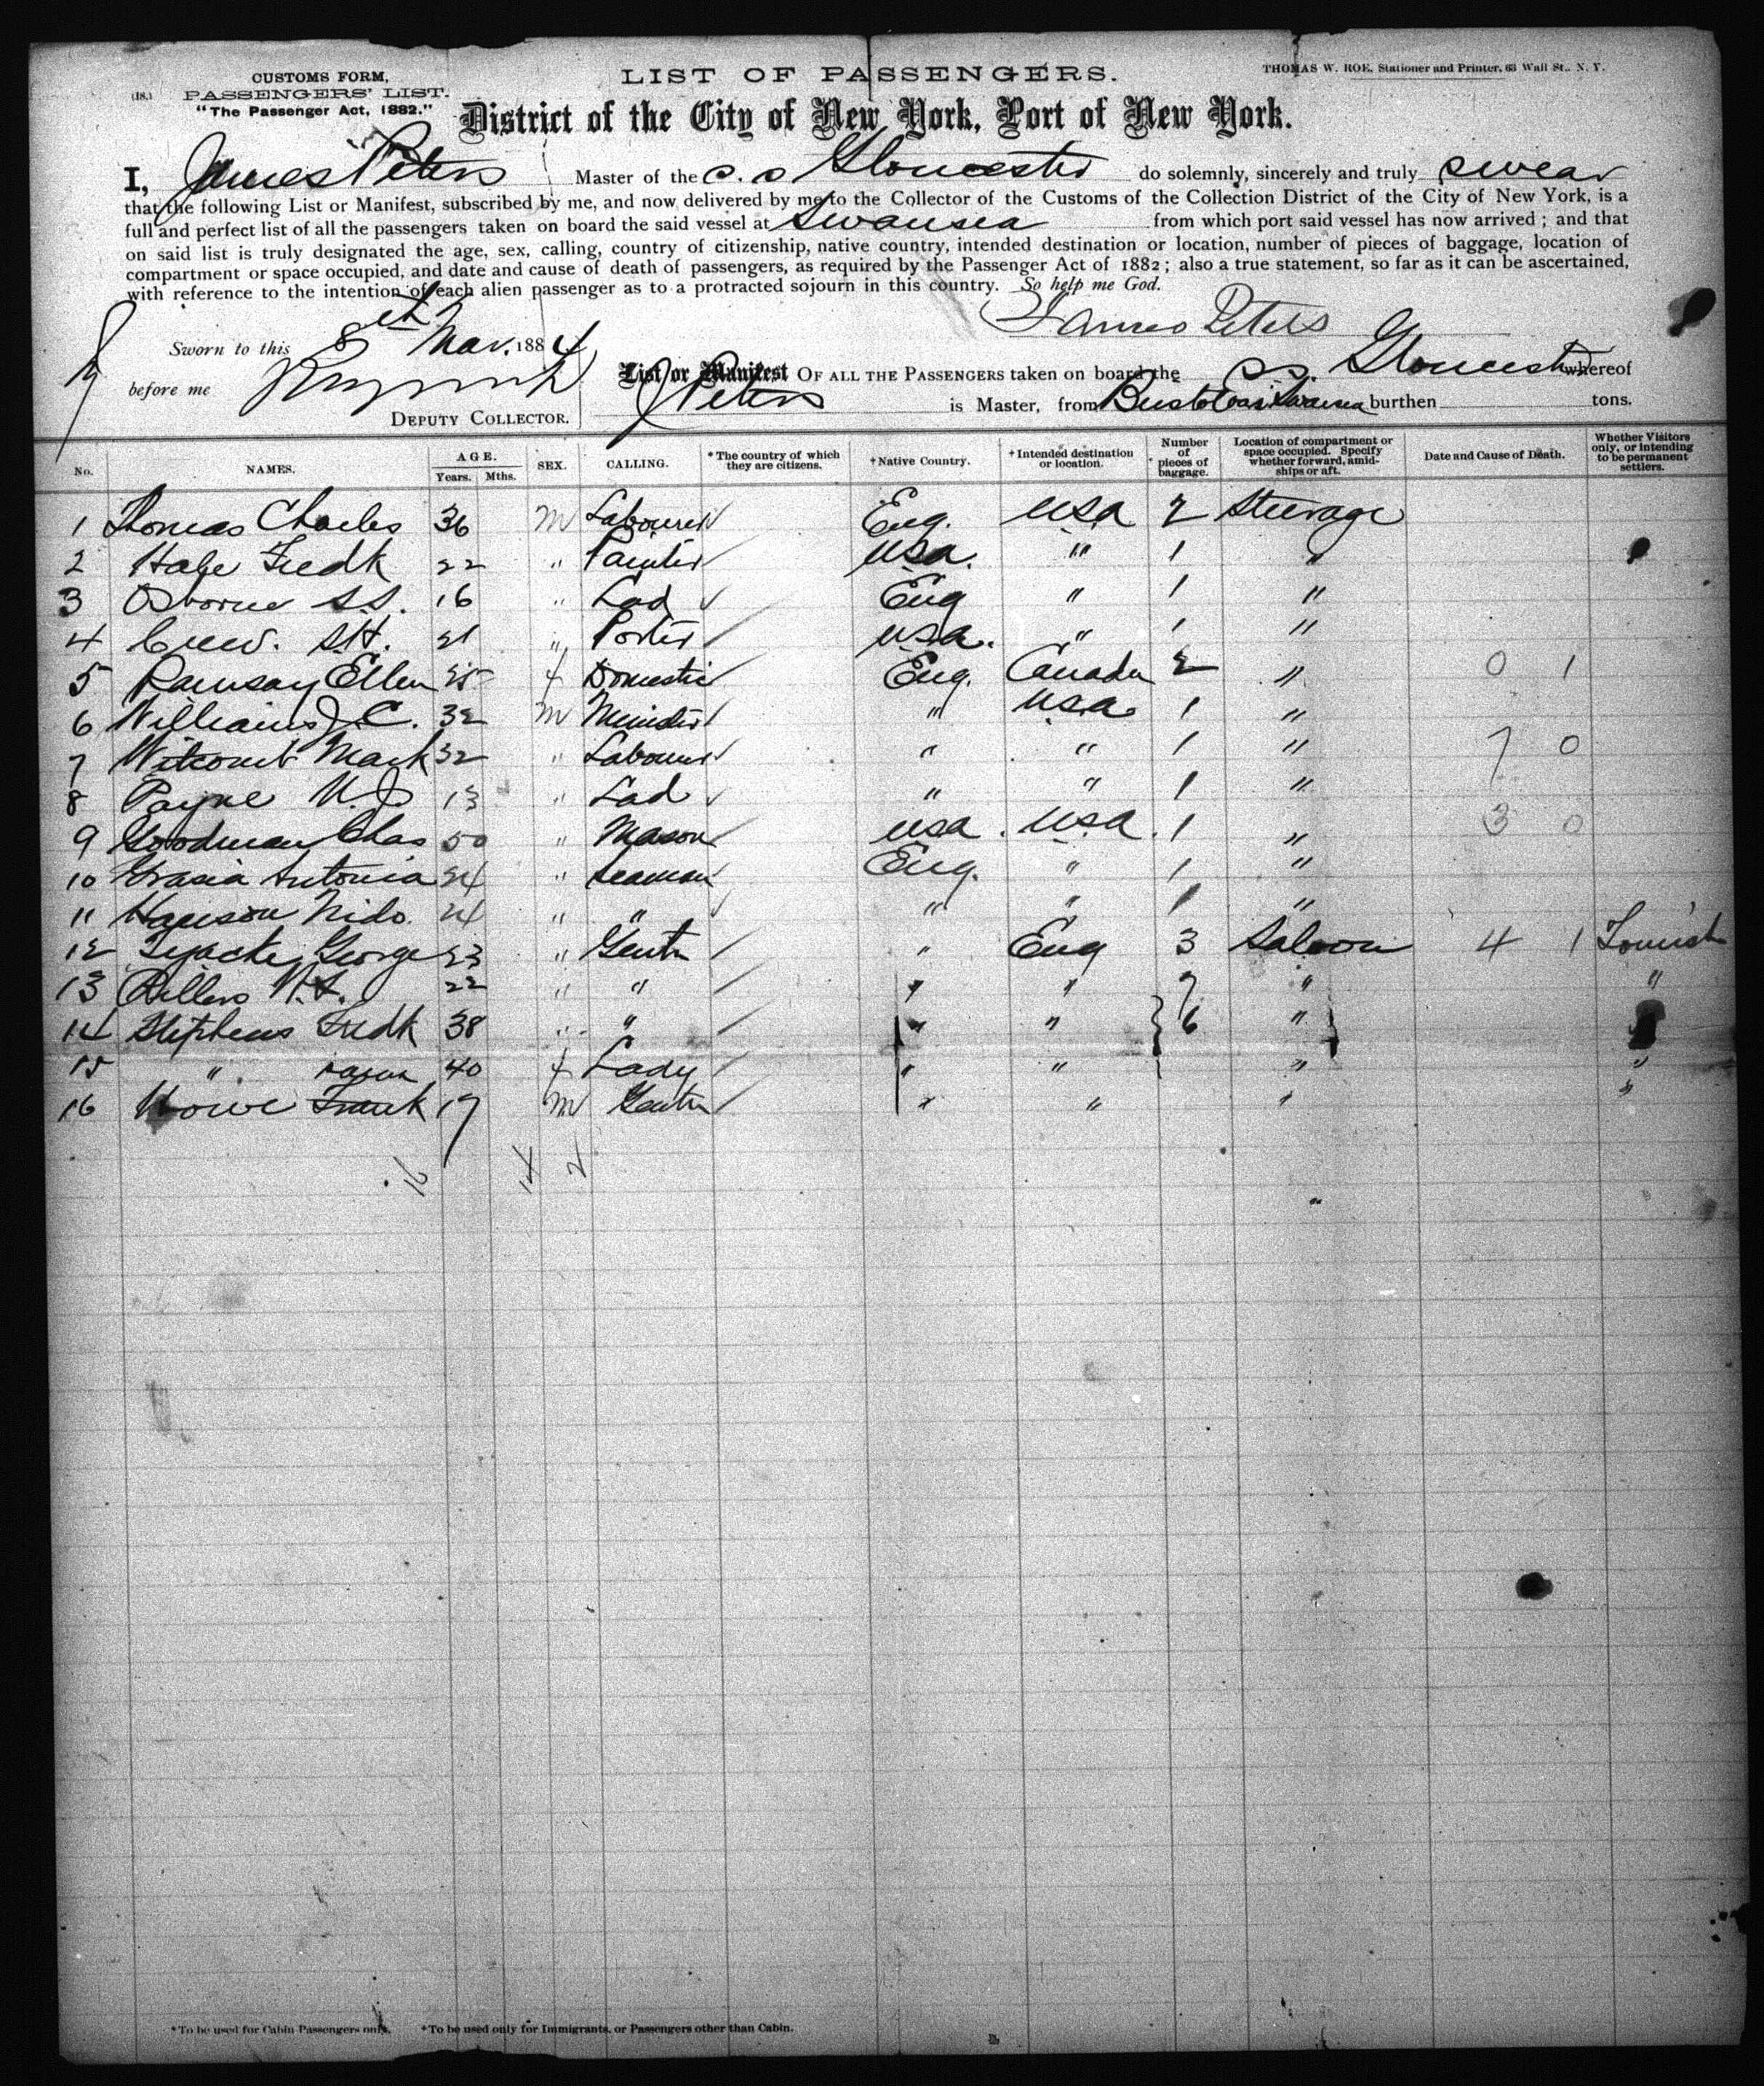 CUSTOMS FORM,
(18.) PASSENGERS' LIST.
"The Passenger Act, 1882."
LIST OF PASSENGERS.
THOMAS W. ROE, Stationer and Printer, 63 Wall St., N. Y.
District of the City of New York, Port of New York.
I, James Peters Master of the s.s Gloucester do solemnly, sincerely and truly swear
that the following List or Manifest, subscribed by me, and now delivered by me to the Collector of the Customs of the Collection District of the City of New York, is a
full and perfect list of all the passengers taken on board the said vessel at Swansea from which port said vessel has now arrived ; and that
on said list is truly designated the age, sex, calling, country of citizenship, native country, intended destination or location, number of pieces of baggage, location of
compartment or space occupied, and date and cause of death of passengers, as required by the Passenger Act of 1882 ; also a true statement, so far as it can be ascertained,
with reference to the intention of each alien passenger as to a protracted sojourn in this country. So help me God.
James Peters
Sworn to this 8th Mar. 1884
before me
DEPUTY COLLECTOR.
List or Manifest OF ALL THE PASSENGERS taken on board the s.s. Gloucester whereof
J Peters is Master, from Bristol Swansea burthen tons.
No. NAMES. AGE. Years. Mths. SEX. CALLING. *The country of which they are citizens. +Native Country. +Intended destination or location. Number of pieces of baggage. Location of compartment or space occupied. Specify whether forward, amidships or aft. Date and Cause of Death. Whether Visitors only, or intending to be permanent settlers.
1 Thomas Charles 36 m Labourer Eng. USA 2 Steerage
2 Fredk 22 " Painter USA. " 1 "
3 Osborne S.S. 16 " Lad Eng " 1 "
4 Crew. S.H. 21 " Porter USA. " 1 "
5 Ramsay Ellen 25 f Domestic Eng. Canada 2 " 0 1
6 Williams J.C. 32 m Minister " USA 1 "
7 Witcomb Mark 32 " Labourer " " 1 " 7 0
8 Payne W.J 13 " Lad " " 1 "
9 Goodman Chas 50 " Mason USA . USA . 1 " 3 0
10 Grasia Antonia 24 " Seaman Eng. " 1 "
11 Hanson Nido. 24 " " " " 1 "
12 George 23 " Gentn " Eng 3 Saloon 4 1 Tourist
13 22 " " " " 7 " "
14 Stephens Fredk 38 " " " " 6 "
15 " 40 f Lady " " " "
16 Howe Frank 19 m Gentn " " " "
16 14 2
*To be used for Cabin Passengers only. +To be used only for Immigrants, or Passengers other than Cabin.